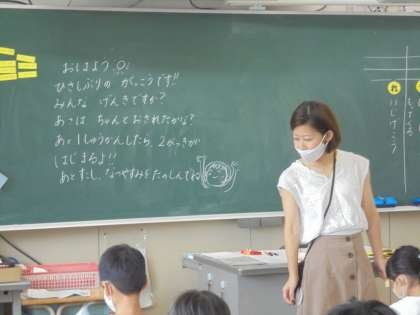 おはよう
ひさしぶりの がっこうです!!
みんな げんきですか?
あさは ちゃんとおきれたかな?
あと1しゅうかんしたら、2がっきが
はじまるよ!!
あとすこし、なつやすみをたのしんでね